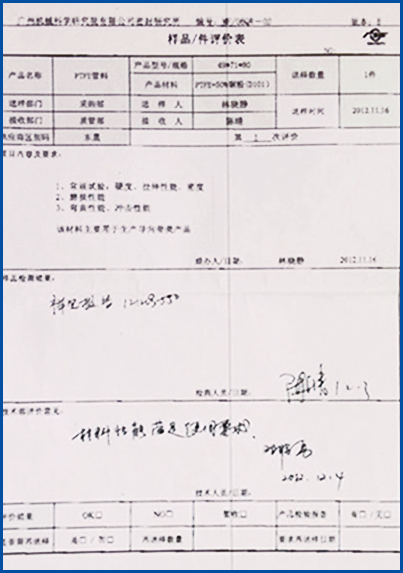 广州机械科学研究院有限公司密封研究所 编号: 版本:
样品/件评价表
NO:
产品名称 PTFE管料 产品型号/规格 49*71*80 送样数量 1件
产品材料 PTFE+50%铜粉(D101)
送样部门 采购部 送样人 林晓静 送样时间 2012.11.16
接收部门 质管部 接收人 陈晴
供应商区别码 东晟 第 1 次评价
项目内容及要求:
1、常规试验:硬度、拉伸性能、密度
2、磨损性能
3、弯曲性能、冲击性能
该材料主要用于生产导向带类产品
经办人/日期: 林晓静 2012.11.16
样品检测结果:
详见报告
检测人员/日期: 陈晴 12.3
技术部评价意见:
材料性能满足使用要求。
2012.12.4
技术人员/日期:
评价结果 OK□ NO□ 暂收□ 产品检验报告 有□/无□
是否需再送样 是□/否□ 再送样数量 要求再送样日期